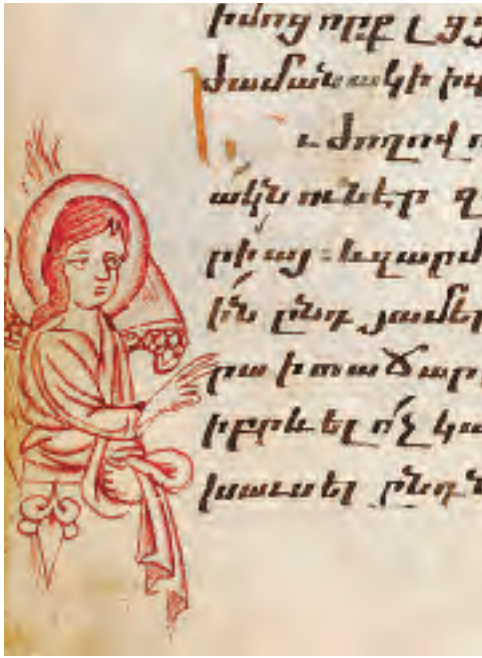 իմոց որք լցց
ժամանակի իւ
ւ ժողով
ակն ունէր զ
րիայ։ եւ զարմ
ին ընդ յամել
րա ի տաճար
իբրև ել ո՛չ կա
խաւսել ընդ ն